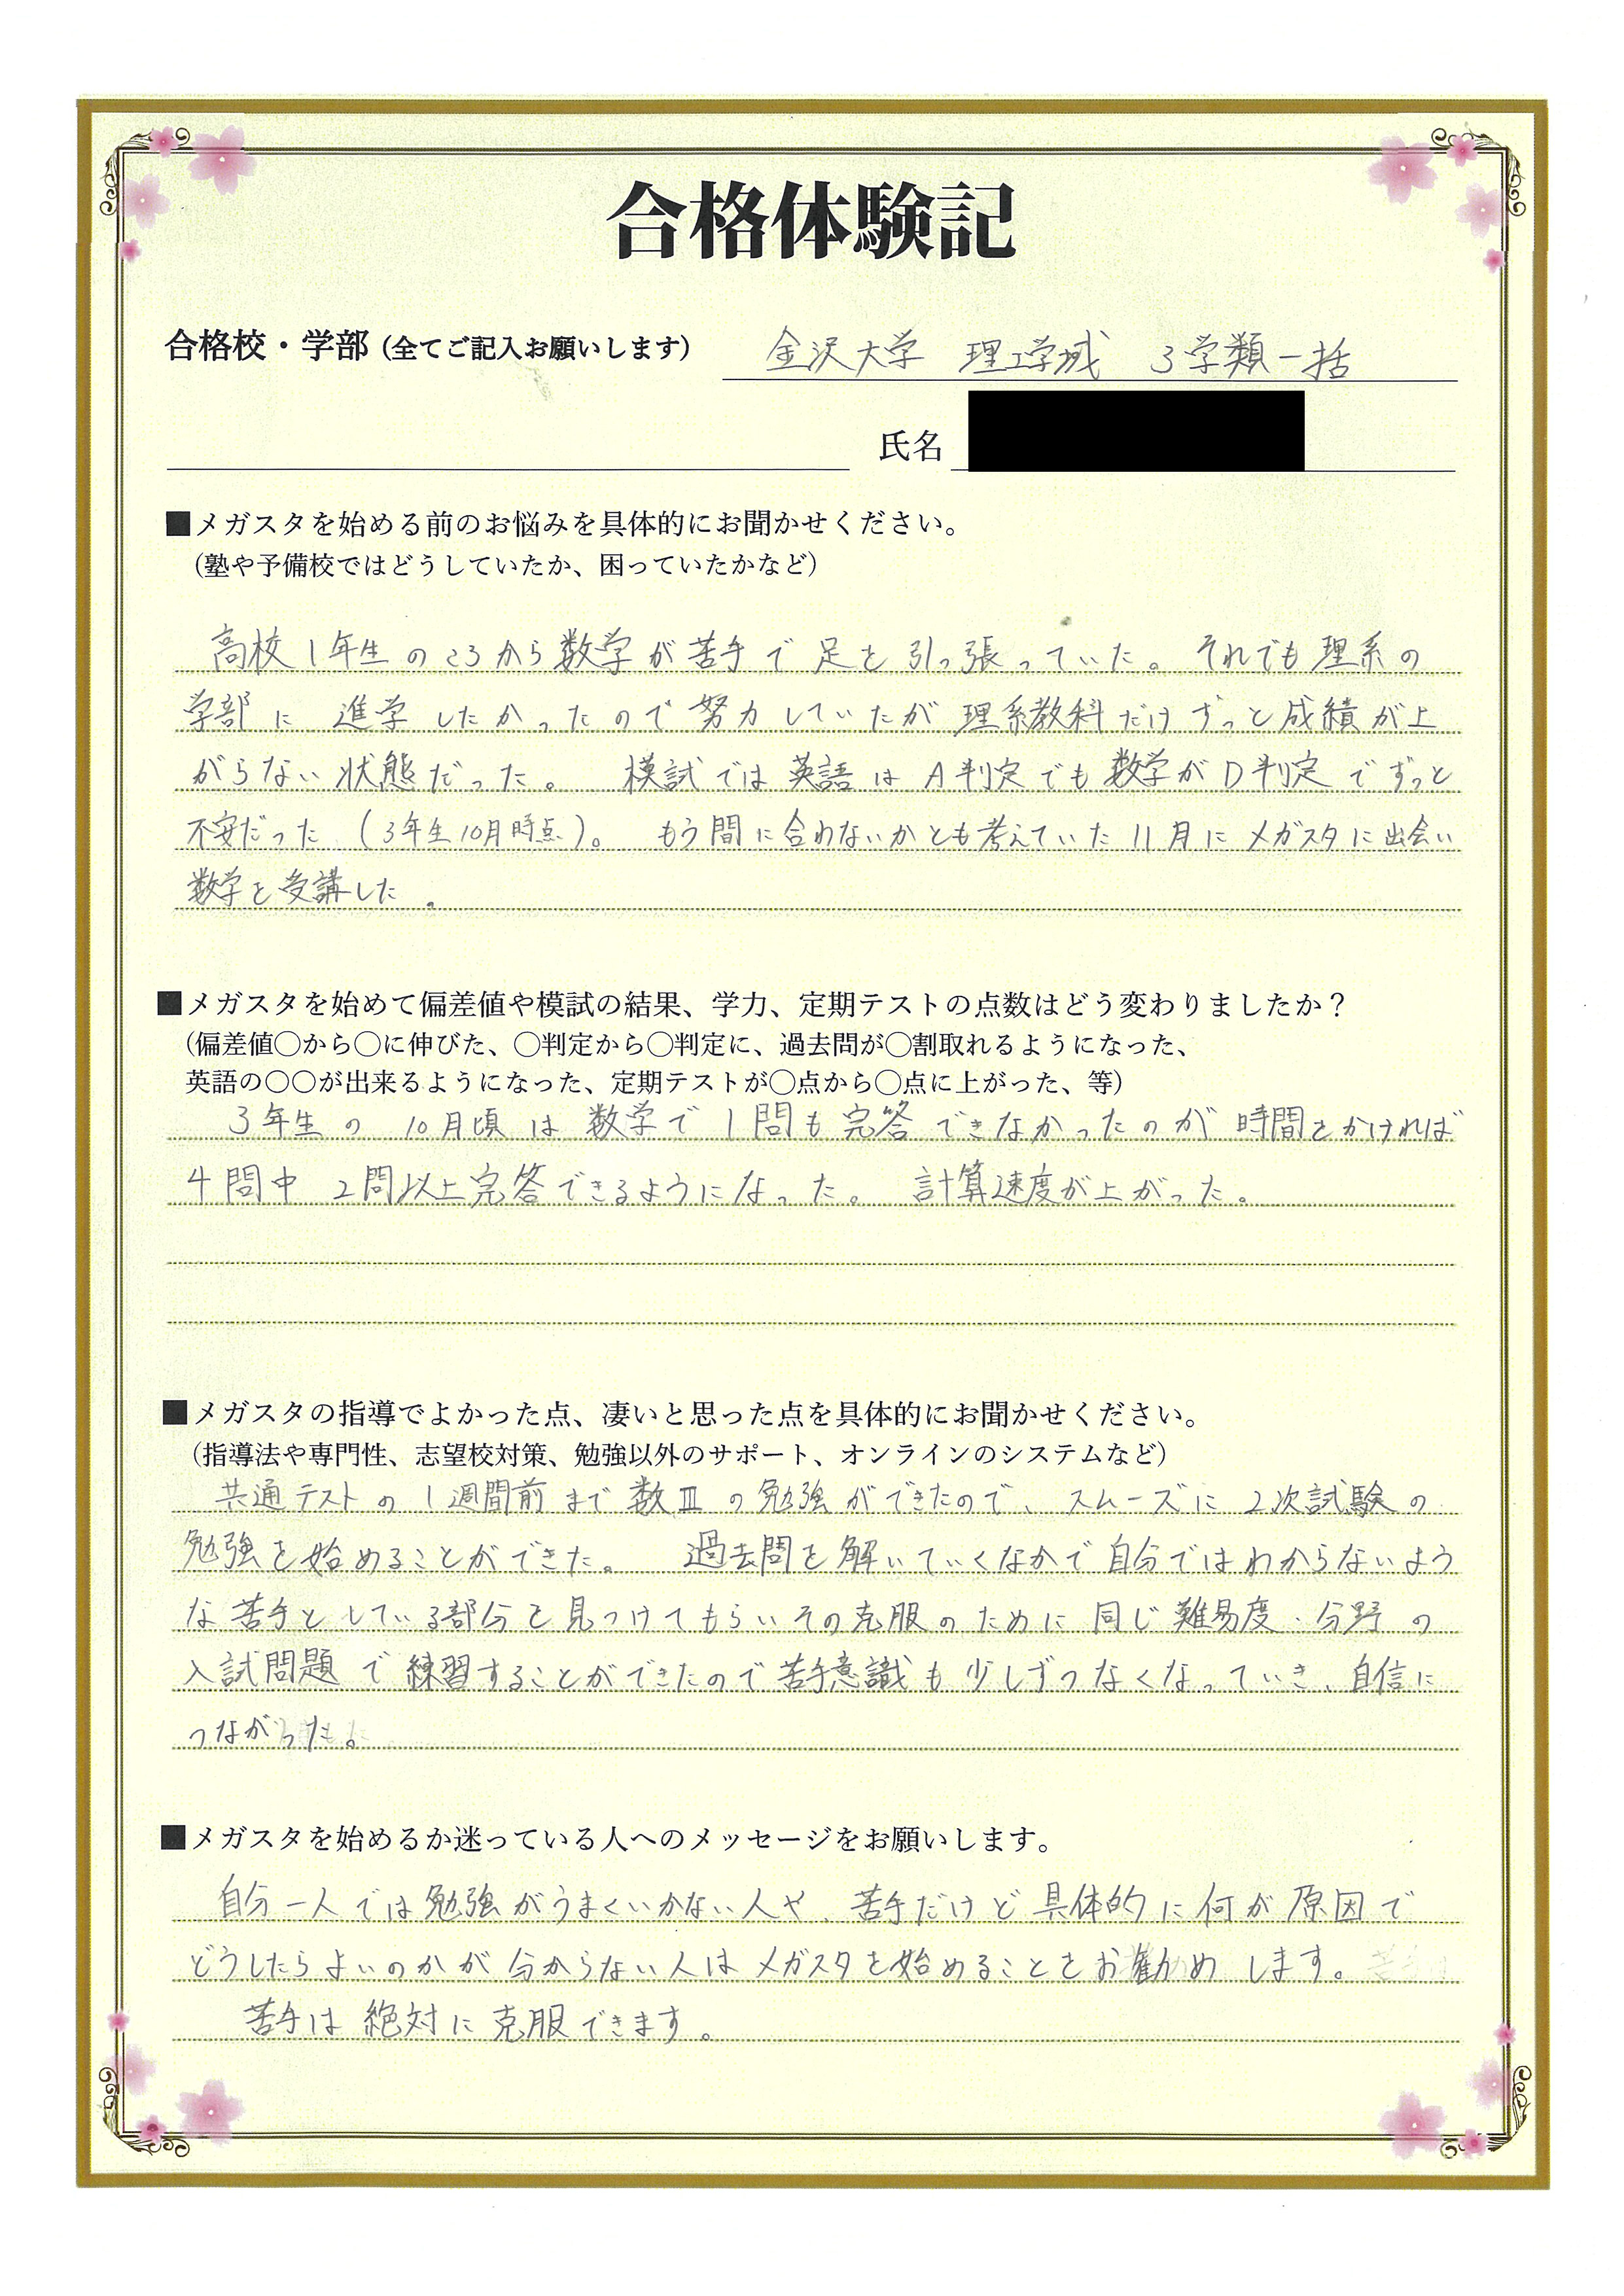 合格体験記
合格校・学部（全てご記入お願いします） 金沢大学 理工学域 3学類一括
氏名
■メガスタを始める前のお悩みを具体的にお聞かせください。
（塾や予備校ではどうしていたか、困っていたかなど）
高校1年生のころから数学が苦手で足を引っ張っていた。それでも理系の
学部に進学したかったので努力していたが理系教科だけずっと成績が上
がらない状態だった。 模試では英語はA判定でも数学がD判定でずっと
不安だった（3年生10月時点）。 もう間に合わないかとも考えていた11月にメガスタに出会い
数学を受講した。
■メガスタを始めて偏差値や模試の結果、学力、定期テストの点数はどう変わりましたか？
（偏差値〇から〇に伸びた、〇判定から〇判定に、過去問が〇割取れるようになった、
英語の〇〇が出来るようになった、定期テストが〇点から〇点に上がった、等）
3年生の10月頃は数学で1問も完答できなかったのが時間をかければ
4問中2問以上完答できるようになった。 計算速度が上がった。
■メガスタの指導でよかった点、凄いと思った点を具体的にお聞かせください。
（指導法や専門性、志望校対策、勉強以外のサポート、オンラインのシステムなど）
共通テストの1週間前まで数Ⅲの勉強ができたので、スムーズに2次試験の
勉強を始めることができた。 過去問を解いていくなかで自分ではわからないよう
な苦手としている部分を見つけてもらいその克服のために同じ難易度・分野の
入試問題で練習することができたので苦手意識も少しずつなくなっていき、自信に
つながった。
■メガスタを始めるか迷っている人へのメッセージをお願いします。
自分一人では勉強がうまくいかない人や、苦手だけど具体的に何が原因で
どうしたらよいのかが分からない人はメガスタを始めることをお勧めします。
苦手は絶対に克服できます。